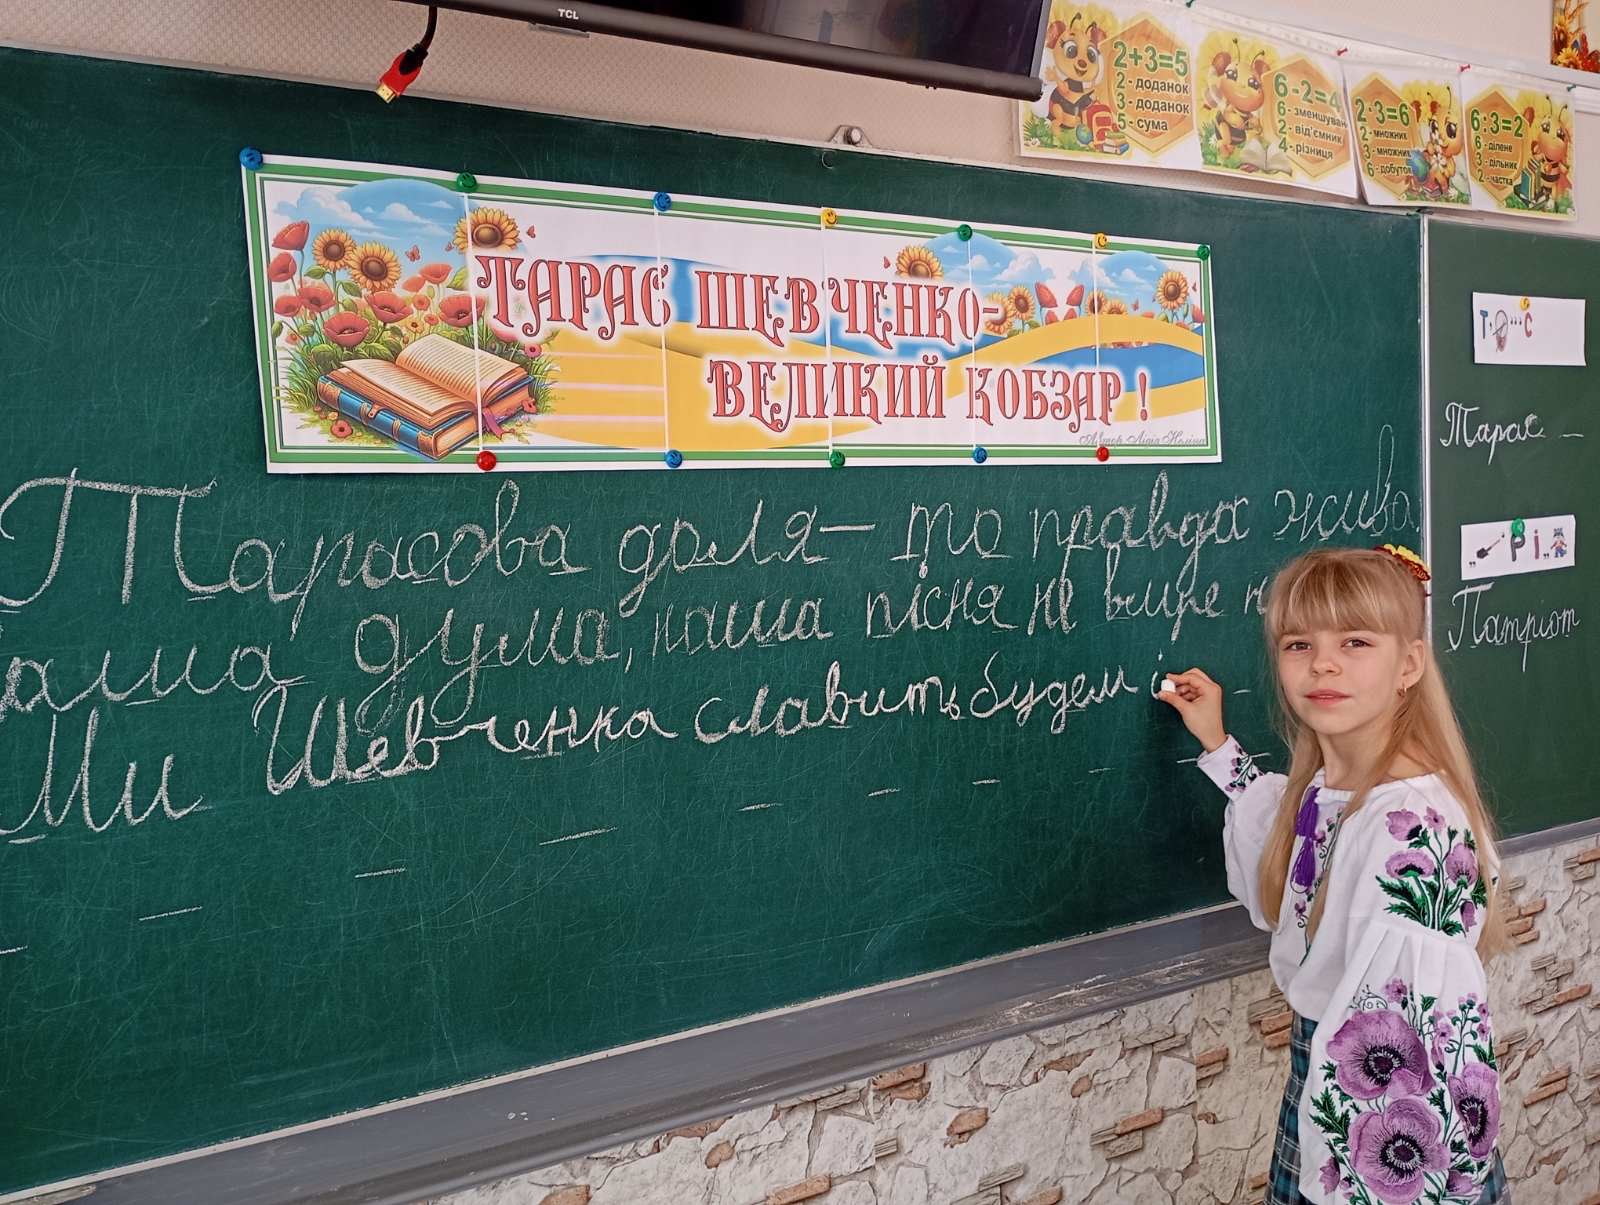 TCL
2+3=5
2 - доданок
3 - доданок
5 - сума
6-2=4
6 - зменшуван
2 - від'ємник
4 - різниця
2·3=6
2 - множник
3 - множник
6 - добуток
6:3=2
6 - ділене
3 - дільник
2 - частка
ТАРАС ШЕВЧЕНКО-
ВЕЛИКИЙ КОБЗАР!
Автор Лідія
Тарасова доля – то правда жива
аша дума, наша пісня не вмре
Ми Шевченка славить будем і
Т,,,,С
Тарас
,, Рі,,
Патріот